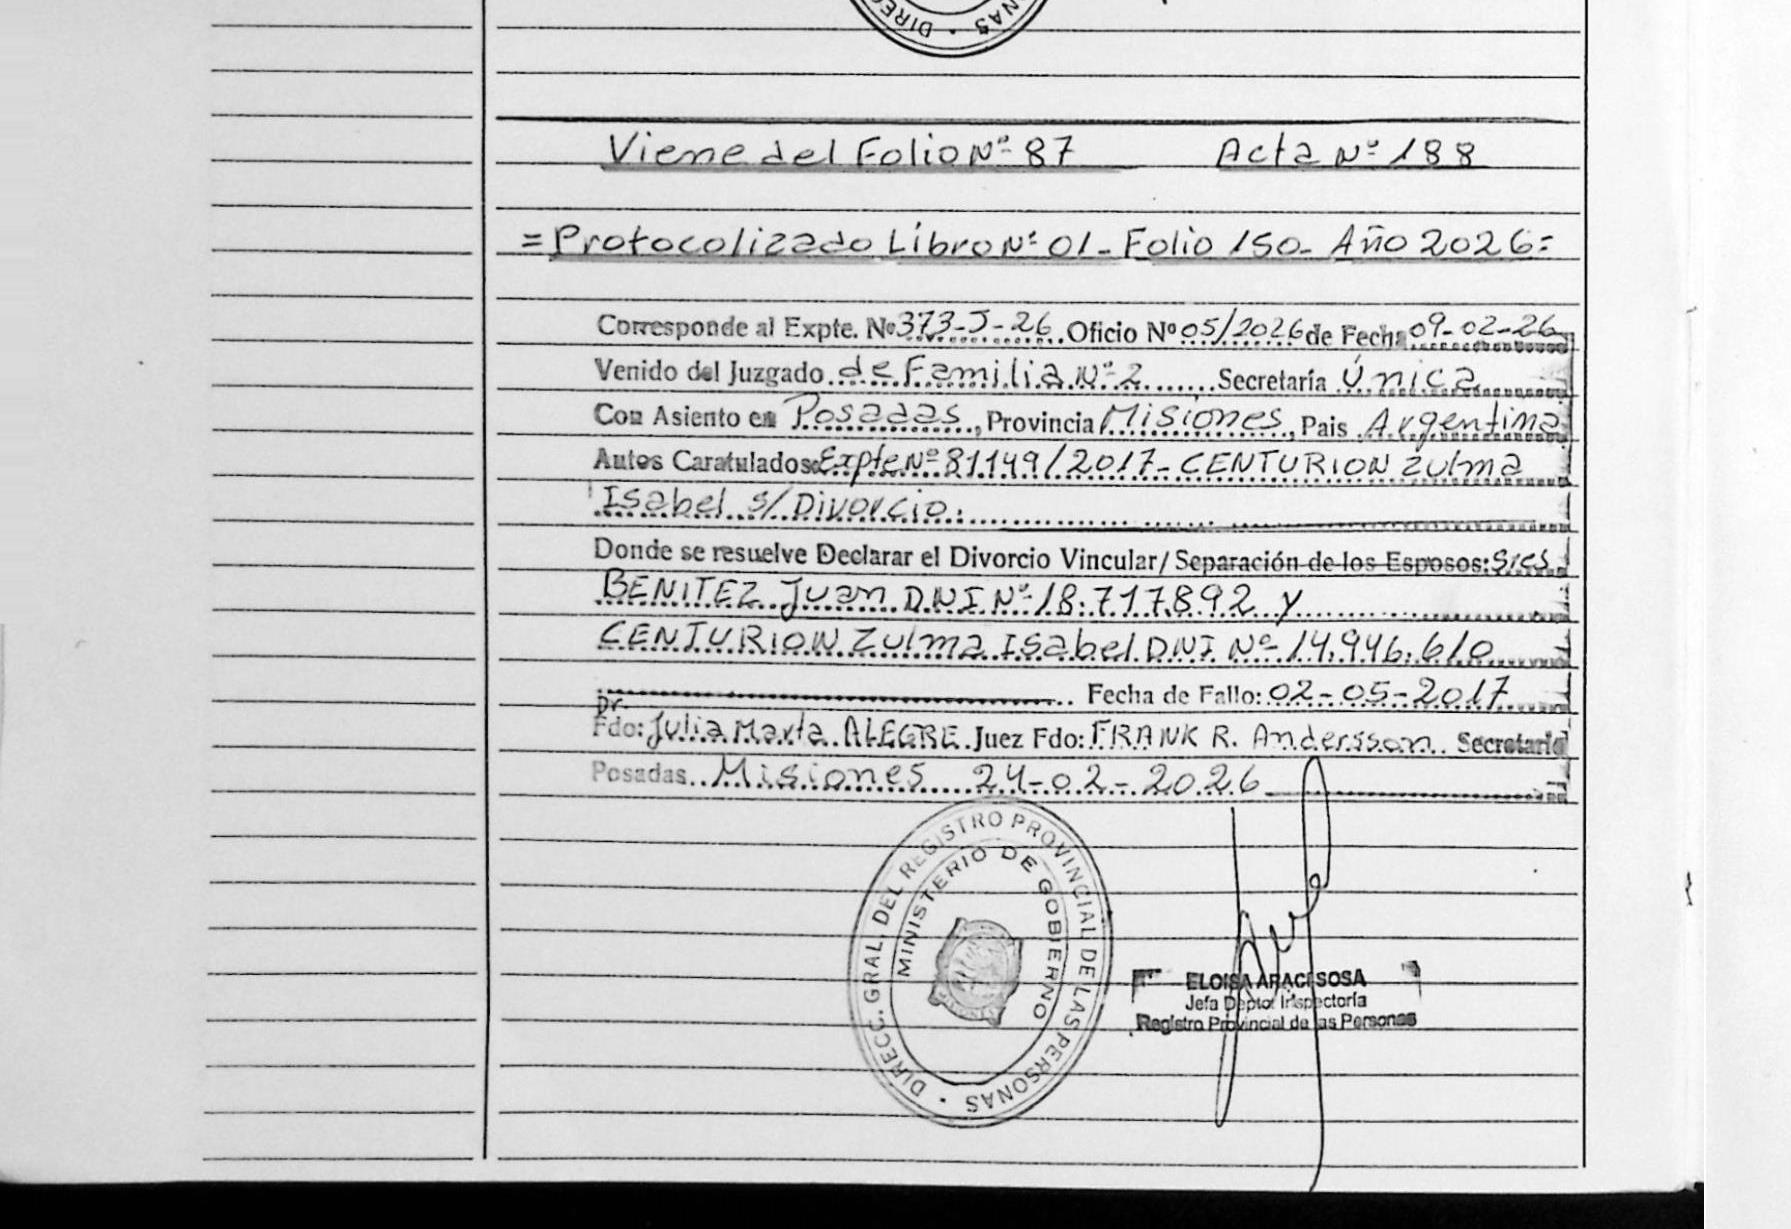 DIREC NAS
Viene del Folio Nº 87 Acta Nº 188
= Protocolizado Libro Nº 01 - Folio 150 - Año 2026 =
Corresponde al Expte. Nº 373-J-26 Oficio Nº 05/2026 de Fecha 09-02-26
Venido del Juzgado de Familia Nº 2 Secretaría Única
Con Asiento en Posadas, Provincia Misiones, Pais Argentina
Autos Caratulados: Expte Nº 81149/2017 - CENTURION Zulma
Isabel s/ Divorcio.
Donde se resuelve Declarar el Divorcio Vincular/ Separación de los Esposos: Sres
BENITEZ Juan DNI Nº 18.717.892 y
CENTURION Zulma Isabel DNI Nº 14.946.610
Fecha de Fallo: 02-05-2017
Dr.
Fdo: Julia Marta ALEGRE Juez Fdo: FRANK R. Andersson Secretario
Posadas Misiones 24-02-2026
DIRECC. GRAL. DEL REGISTRO PROVINCIAL DE LAS PERSONAS
MINISTERIO DE GOBIERNO
ELOISA ARACI SOSA
Jefa Depto. Inspectoría
Registro Provincial de las Personas